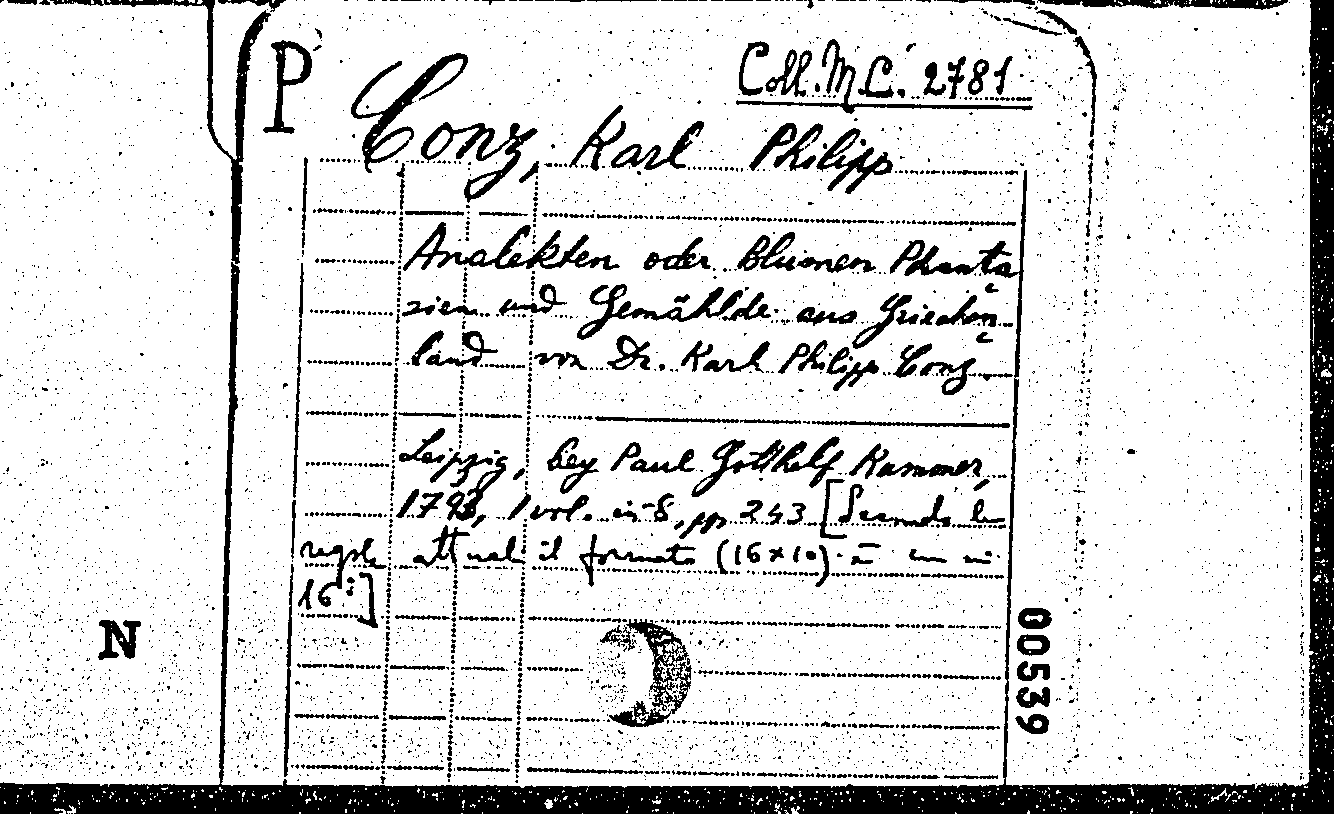 P
Coll. M.C. 2781
Conz, Karl Philipp
Analekten oder Blumen Phanta
sien und Gemählde aus Griechen
land von Dr. Karl Philipp Conz.
Leipzig, bey Paul Gotthelf Kummer,
1793, 1 vol. in-8, pp 243 [Secondo le
regole attuali il formato (16x10) è un in
16°]
N
00539